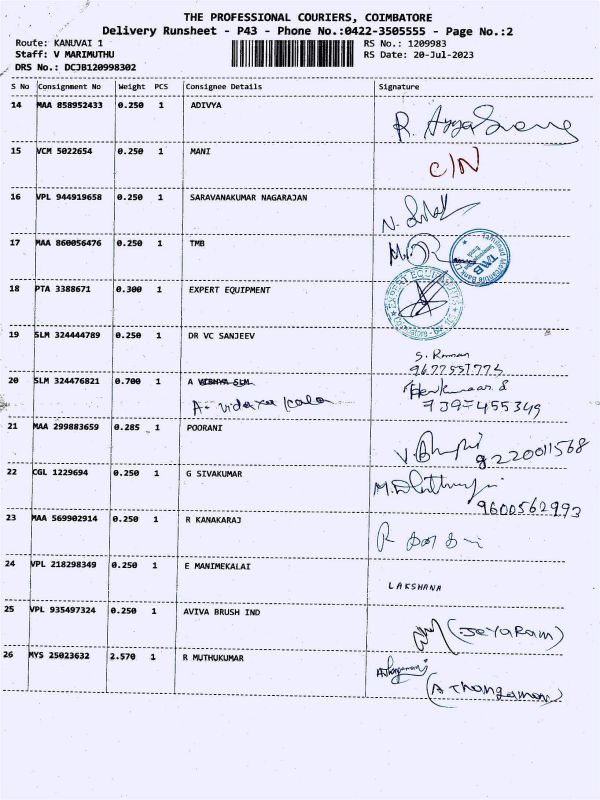 THE PROFESSIONAL COURIERS, COIMBATORE
Delivery Runsheet - P43 - Phone No.:0422-3505555 - Page No.:2
Route: KANUVAI 1 RS No.: 1209983
Staff: V MARIMUTHU RS Date: 20-Jul-2023
DRS No.: DCJB120998302
S No Consignment No Weight PCS Consignee Details Signature
14 MAA 858952433 0.250 1 ADIVYA
15 VCM 5022654 0.250 1 MANI C/N
16 VPL 944919658 0.250 1 SARAVANAKUMAR NAGARAJAN
17 MAA 860056476 0.250 1 TMB
TMB
18 PTA 3388671 0.300 1 EXPERT EQUIPMENT
19 SLM 324444789 0.250 1 DR VC SANJEEV
S. Raman
9677557776
20 SLM 324476821 0.700 1 A VIDHYA SLM
A. vidaya kala
7397455349
21 MAA 299883659 0.285 1 POORANI
8220011568
22 CGL 1229694 0.250 1 G SIVAKUMAR
9600562993
23 MAA 569902914 0.250 1 R KANAKARAJ
24 VPL 218298349 0.250 1 E MANIMEKALAI
LAKSHANA
25 VPL 935497324 0.250 1 AVIVA BRUSH IND
(JEYARAM)
26 MYS 25023632 2.570 1 R MUTHUKUMAR
(A Thangamani)